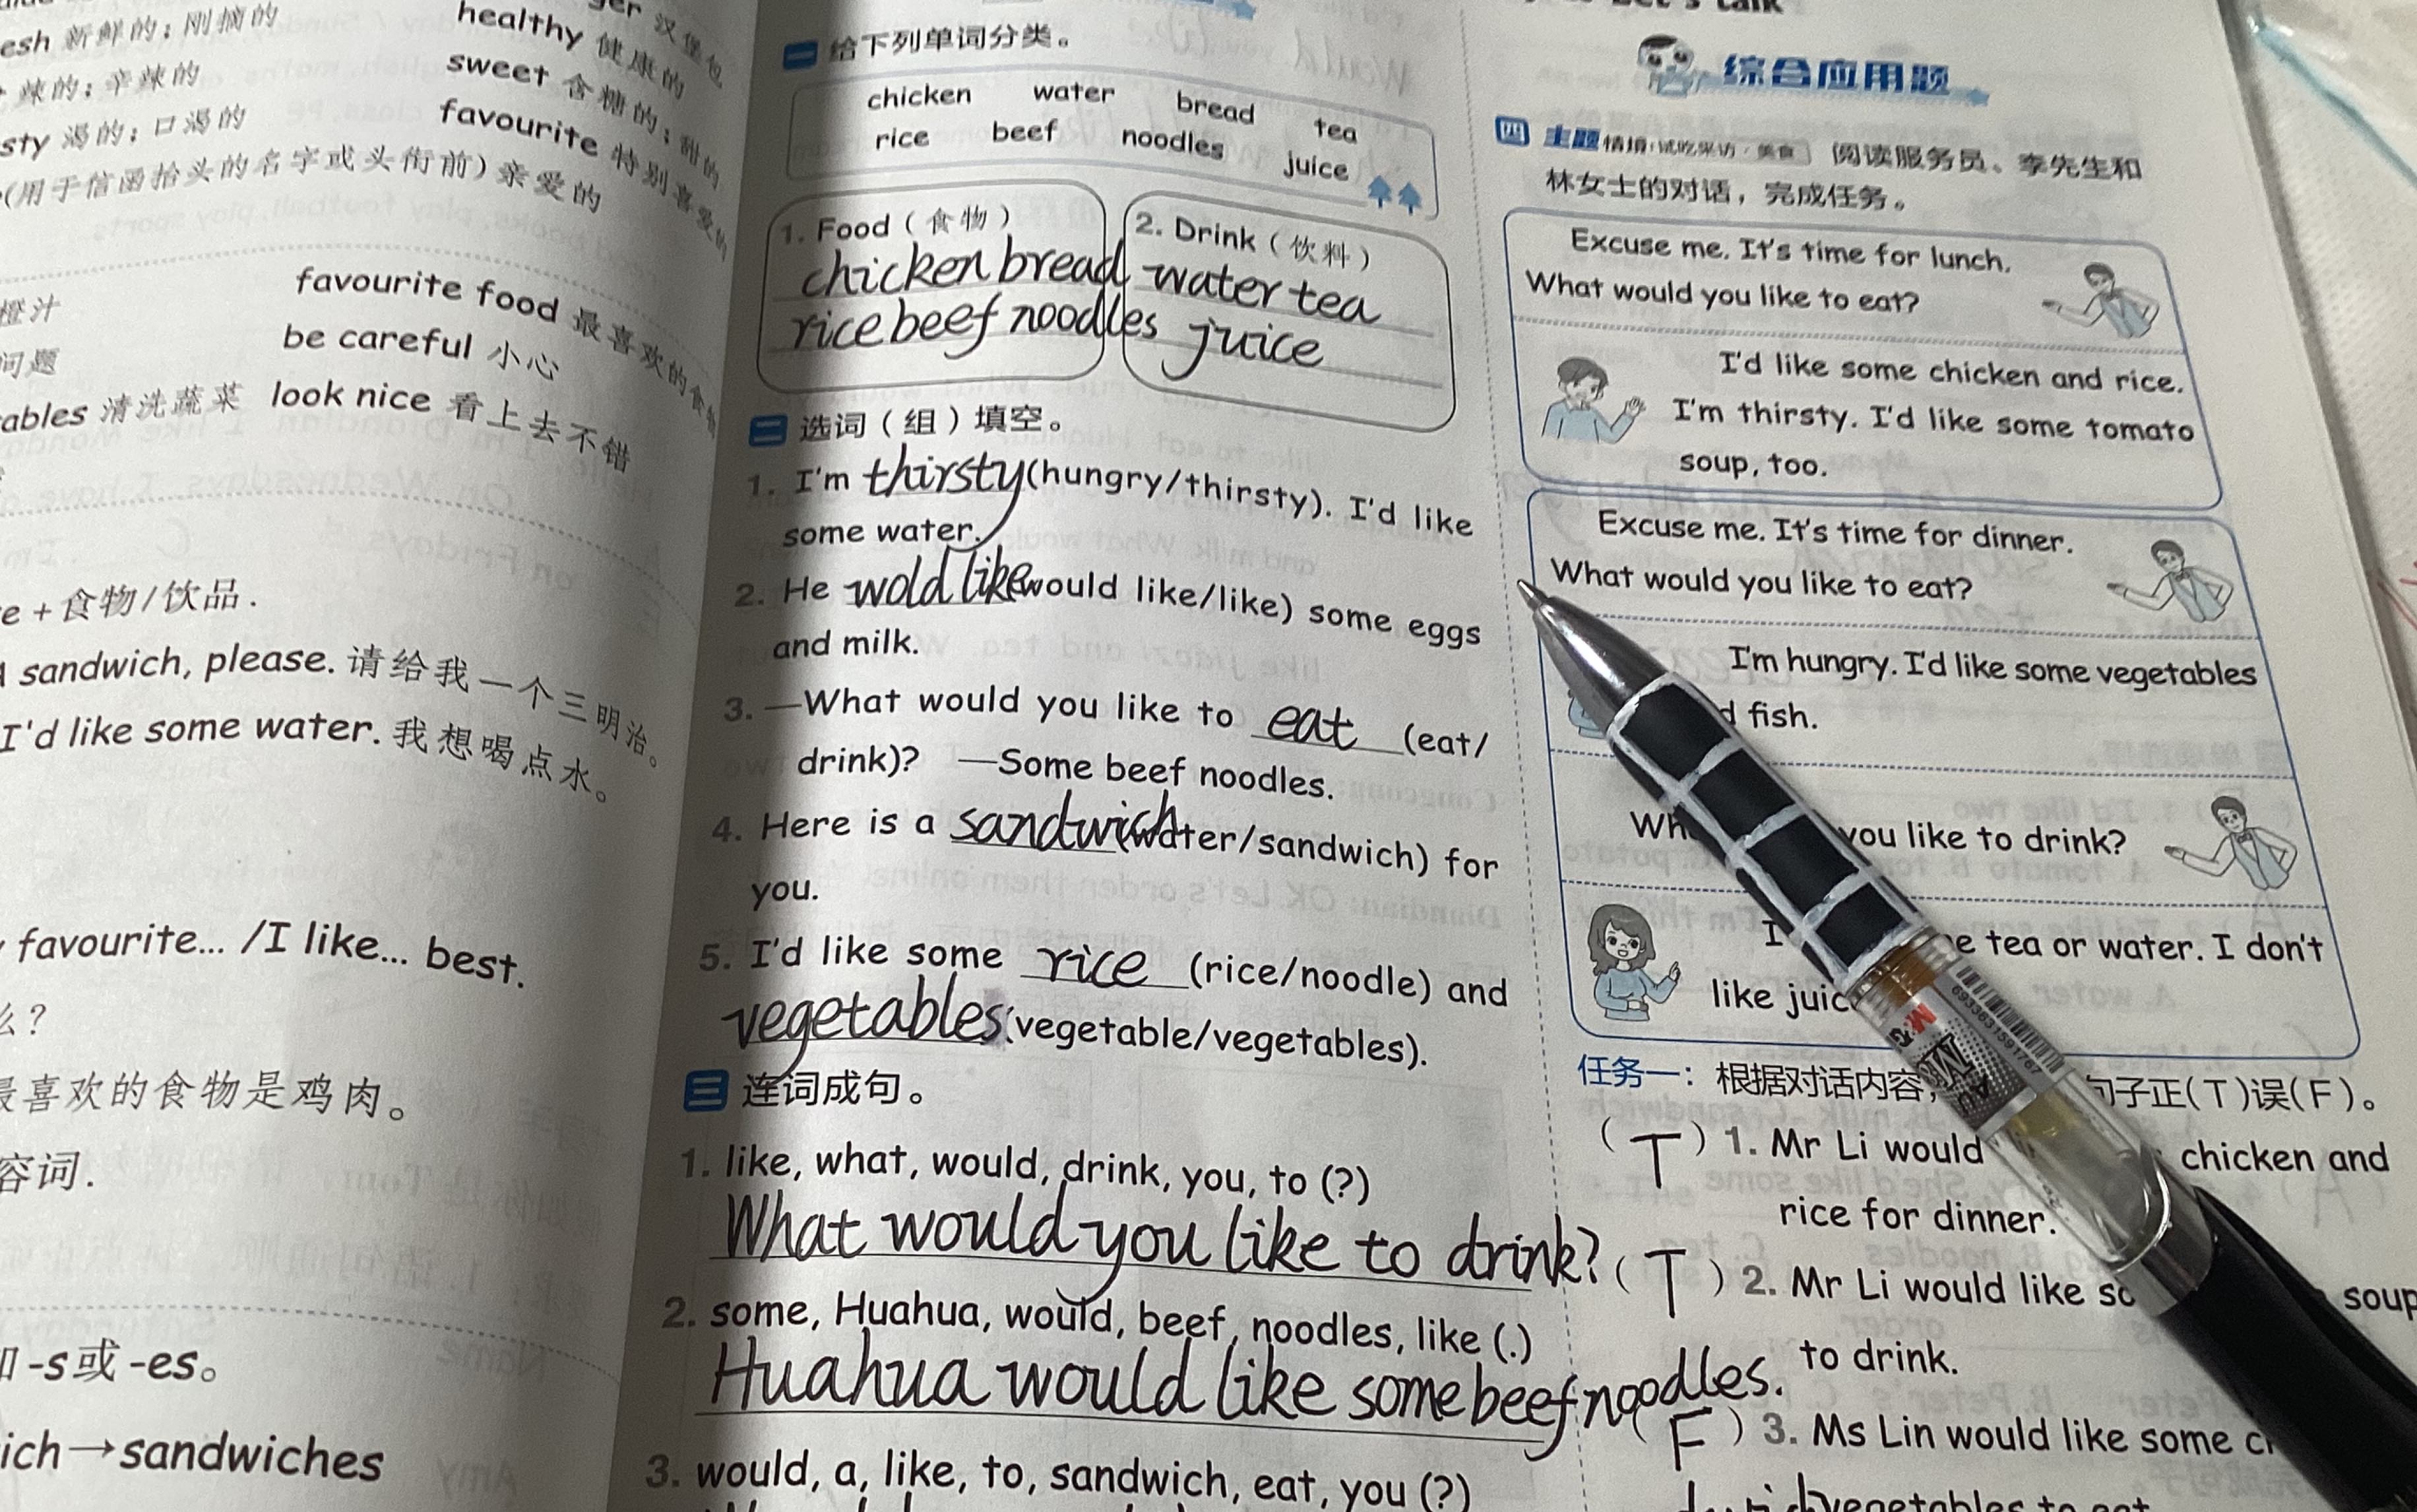 esh 新鲜的；刚摘的
辣的；辛辣的
sty 渴的；口渴的
(用于信函抬头的名字或头衔前) 亲爱的
汉堡包
healthy 健康的
sweet 含糖的；甜的
favourite 特别喜爱的
橙汁
问题
ables 清洗蔬菜
favourite food 最喜欢的食物
be careful 小心
look nice 看上去不错
e + 食物/饮品.
A sandwich, please. 请给我一个三明治。
I'd like some water. 我想喝点水。
favourite... /I like... best.
么？
最喜欢的食物是鸡肉。
容词.
-s或 -es。
ich→sandwiches
一 给下列单词分类。
chicken water bread tea
rice beef noodles juice
1. Food（食物）
chicken bread
rice beef noodles
2. Drink（饮料）
water tea
juice
二 选词（组）填空。
1. I'm thirsty (hungry/thirsty). I'd like
some water.
2. He wold like would like/like) some eggs
and milk.
3. —What would you like to eat (eat/
drink)? —Some beef noodles.
4. Here is a sandwich (water/sandwich) for
you.
5. I'd like some rice (rice/noodle) and
vegetables (vegetable/vegetables).
三 连词成句。
1. like, what, would, drink, you, to (?)
What would you like to drink?
2. some, Huahua, would, beef, noodles, like (.)
Huahua would like some beef noodles.
3. would, a, like, to, sandwich, eat, you (?)
talk
综合应用题
四 主题情境：试吃采访·美食 阅读服务员、李先生和
林女士的对话，完成任务。
Excuse me. It's time for lunch.
What would you like to eat?
I'd like some chicken and rice.
I'm thirsty. I'd like some tomato
soup, too.
Excuse me. It's time for dinner.
What would you like to eat?
I'm hungry. I'd like some vegetables
d fish.
Wh you like to drink?
I e tea or water. I don't
like juic
任务一：根据对话内容， 句子正(T)误(F)。
( T ) 1. Mr Li would chicken and
rice for dinner.
( T ) 2. Mr Li would like so soup
to drink.
( F ) 3. Ms Lin would like some c
vegetables to eat
M&G
6936363159176/7